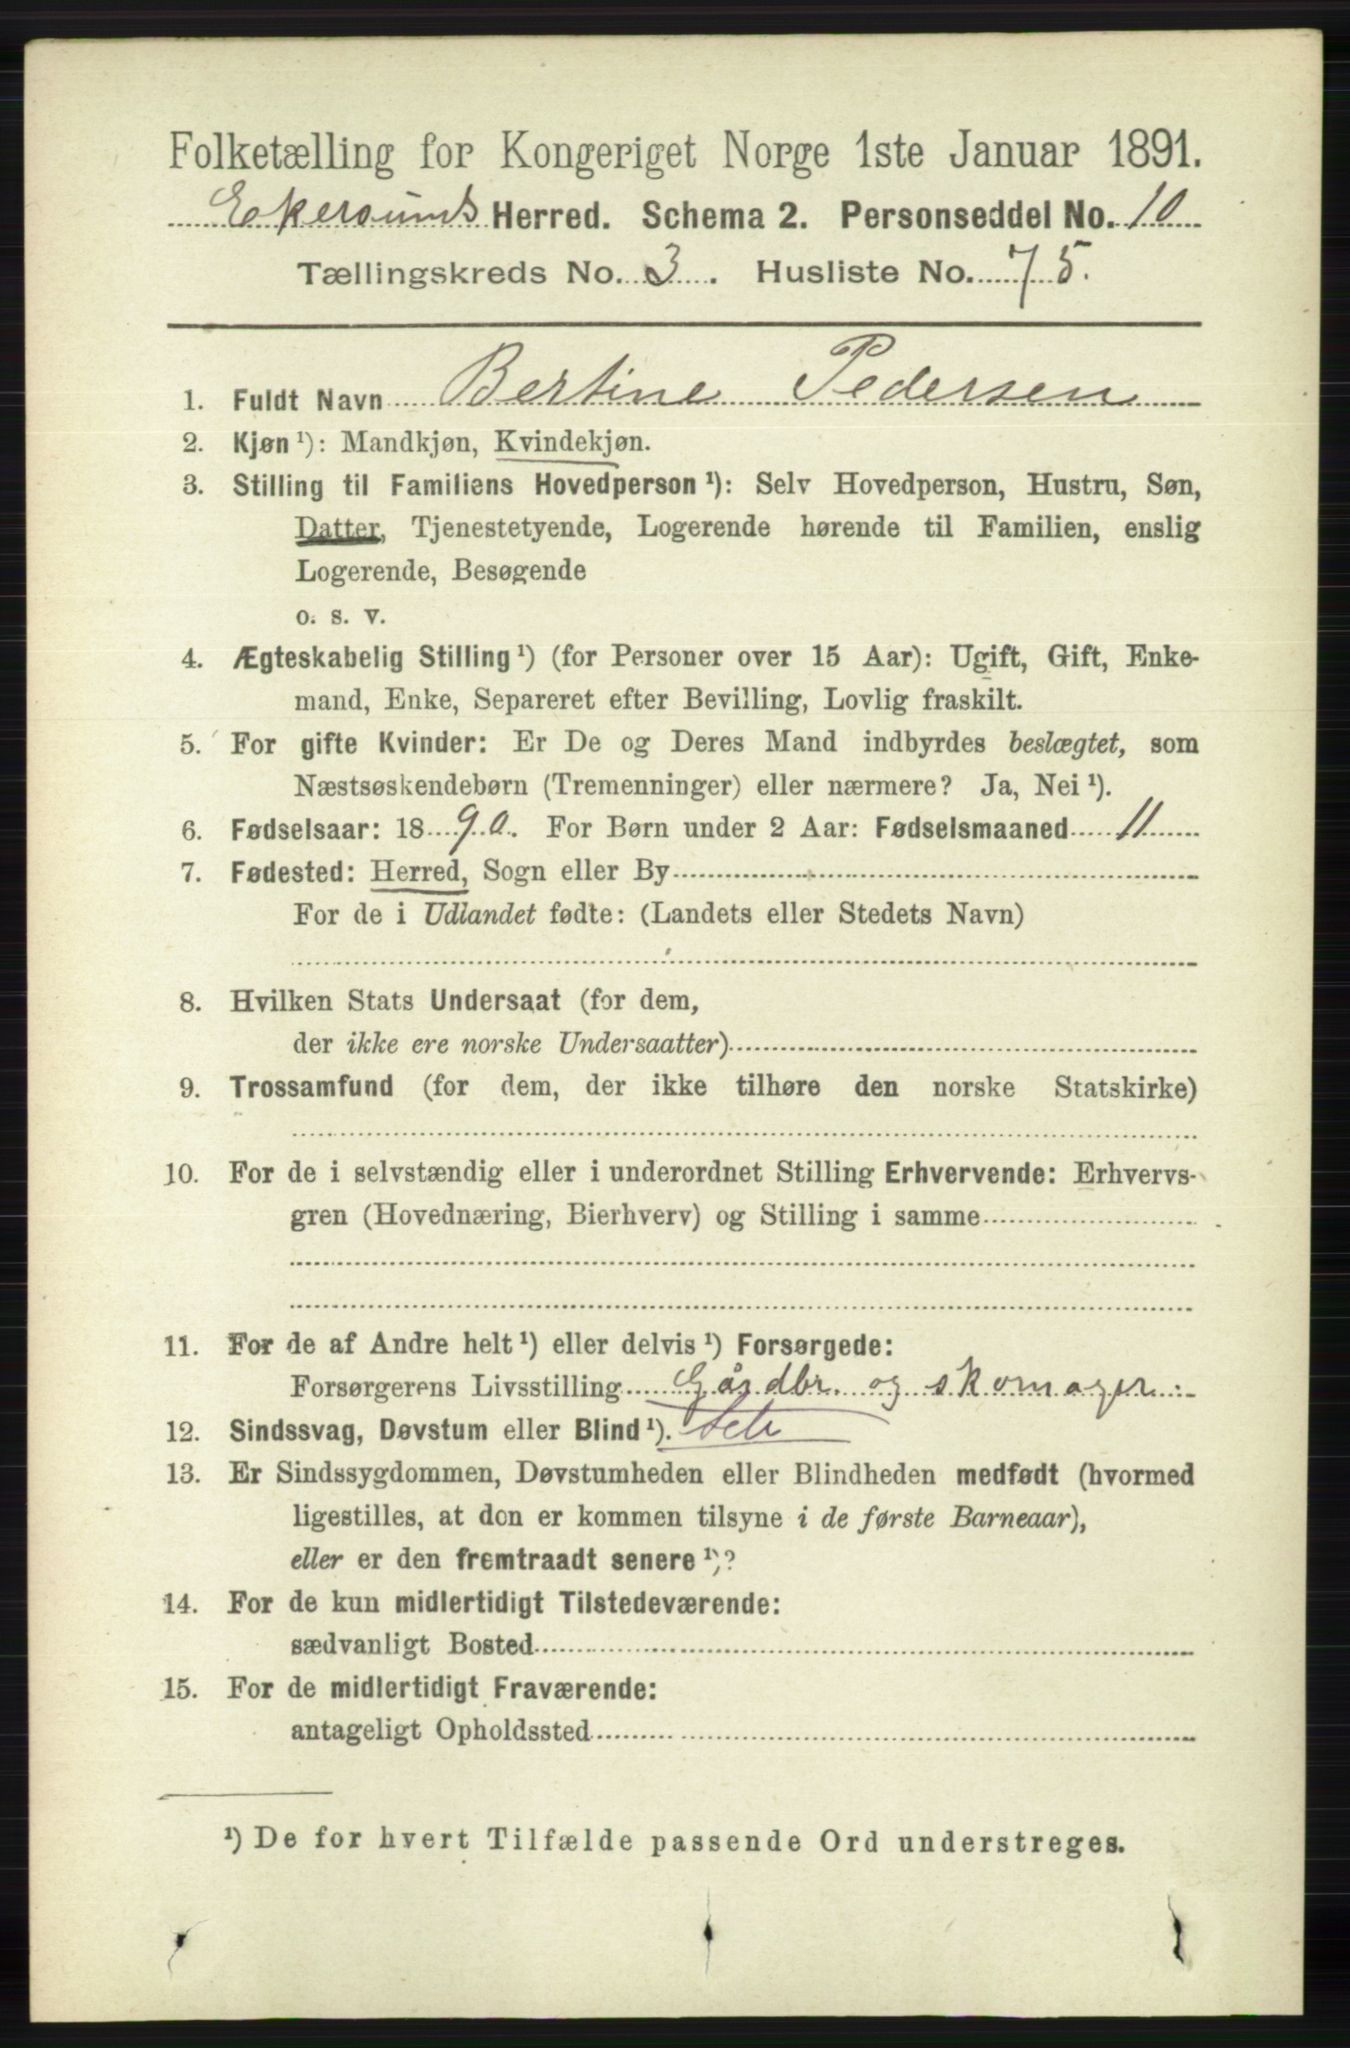 Folketælling for Kongeriget Norge 1ste Januar 1891.
Ekersunds Herred. Schema 2. Personseddel No. 10
Tællingskreds No. 3. Husliste No. 75.
1. Fuldt Navn Bertine Pedersen
2. Kjøn ¹): Mandkjøn, Kvindekjøn.
3. Stilling til Familiens Hovedperson ¹): Selv Hovedperson, Hustru, Søn,
Datter, Tjenestetyende, Logerende hørende til Familien, enslig
Logerende, Besøgende
o. s. v.
4. Ægteskabelig Stilling ¹) (for Personer over 15 Aar): Ugift, Gift, Enke-
mand, Enke, Separeret efter Bevilling, Lovlig fraskilt.
5. For gifte Kvinder: Er De og Deres Mand indbyrdes beslægtet, som
Næstsøskendebørn (Tremenninger) eller nærmere? Ja, Nei ¹).
6. Fødselsaar: 1890. For Børn under 2 Aar: Fødselsmaaned 11
7. Fødested: Herred, Sogn eller By
For de i Udlandet fødte: (Landets eller Stedets Navn)
8. Hvilken Stats Undersaat (for dem,
der ikke ere norske Undersaatter)
9. Trossamfund (for dem, der ikke tilhøre den norske Statskirke)
10. For de i selvstændig eller i underordnet Stilling Erhvervende: Erhvervs-
gren (Hovednæring, Bierhverv) og Stilling i samme
11. For de af Andre helt ¹) eller delvis ¹) Forsørgede:
Forsørgerens Livsstilling Gårdbr. og skomager
12. Sindssvag, Døvstum eller Blind ¹).
13. Er Sindssygdommen, Døvstumheden eller Blindheden medfødt (hvormed
ligestilles, at don er kommen tilsyne i de første Barneaar),
eller er den fremtraadt senere ¹)?
14. For de kun midlertidigt Tilstedeværende:
sædvanligt Bosted
15. For de midlertidigt Fraværende:
antageligt Opholdssted
¹) De for hvert Tilfælde passende Ord understreges.